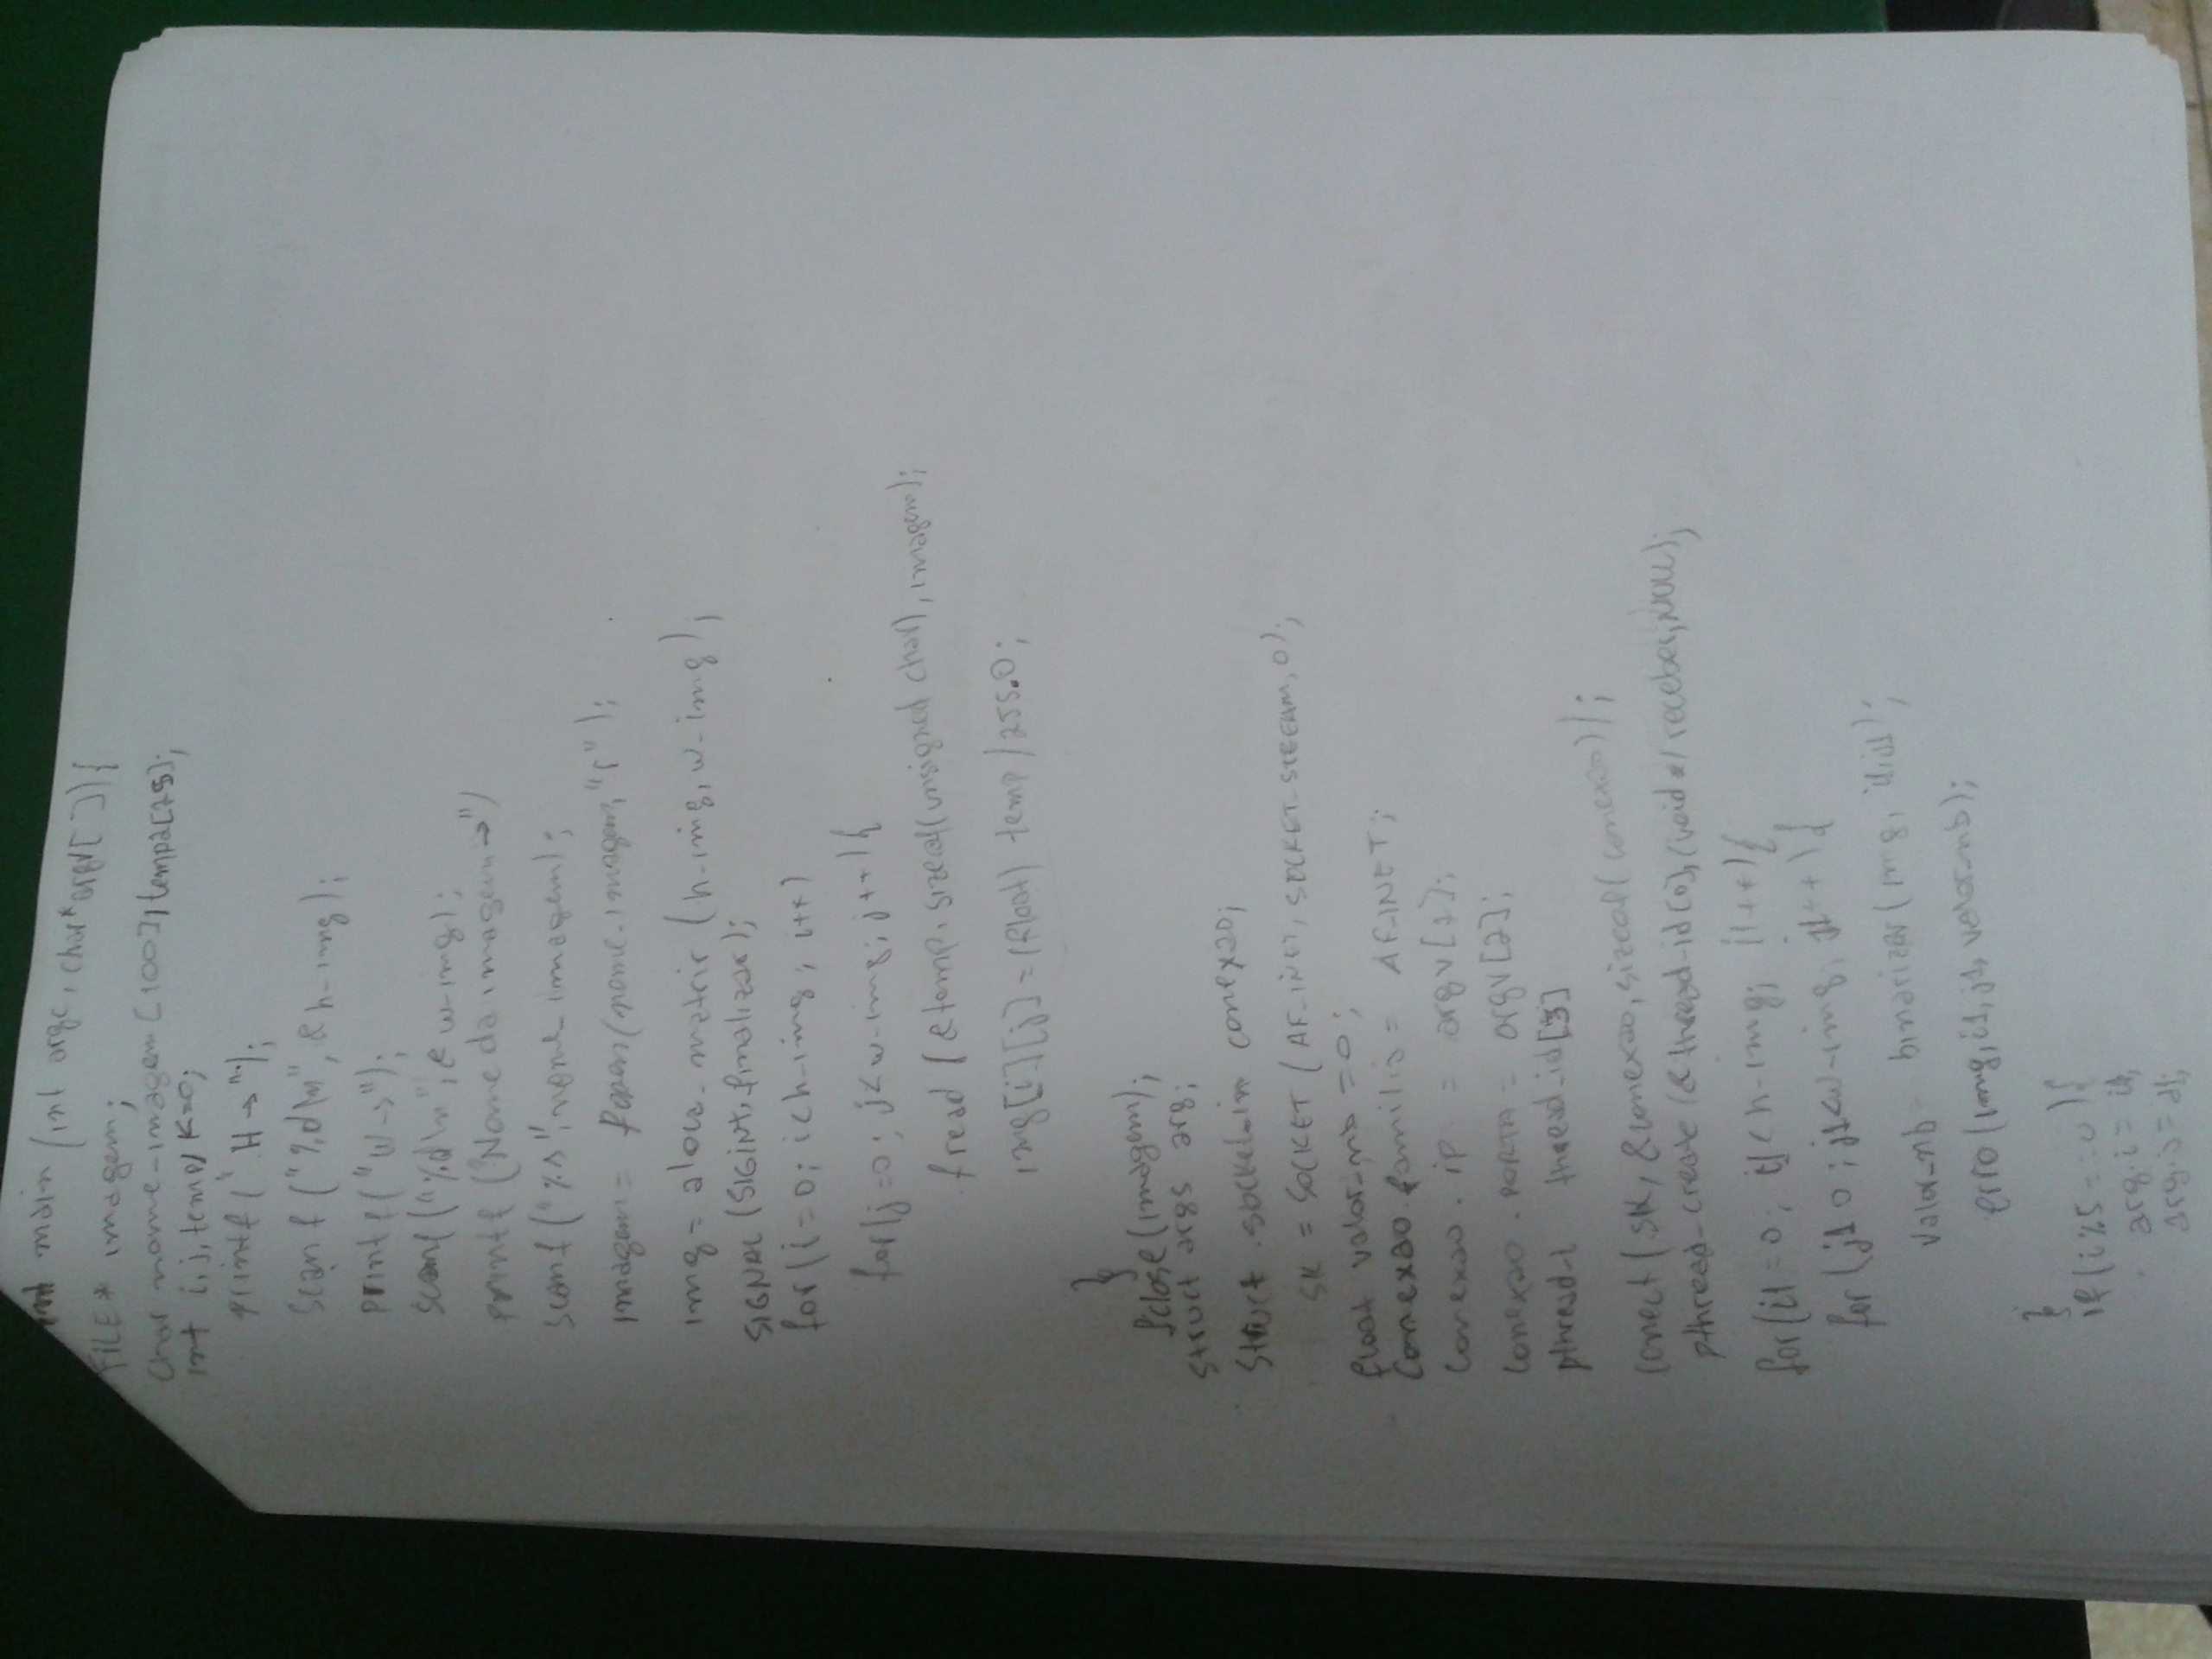 int main (int argc, char* argv[ ]){
FILE* imagem;
char nome-imagem[100], temp2[25];
int i, j, temp, K=0;
printf(" H → ");
scanf ("%d\n", &h-img);
printf("W→");
scanf("%d\n", &w-img);
printf ("Nome da imagem→")
scanf ("%s", nome-imagem);
imagem = fopen(nome-imagem, "r");
img = aloca-matriz (h-img, w-img);
SIGNAL (SIGINT, finalizar);
for(i=0; i<h-img; i++)
for(j=0; j<w-img; j++){
fread (&temp, sizeof(unsigned char), imagem);
img[i][j] = (float) temp/255.0;
}
fclose(imagem);
struct args arg;
struct socket-in conexao;
SK = SOCKET (AF-INET, SOCKET-STREAM, 0);
float valor-nb = 0;
Conexao.familia = AF-INET;
Conexao.ip = argv[1];
Conexao.PORTA = argv[2];
pthread-t thread-id[3]
conect(SK, &conexao, sizeof(conexao));
pthread-create (&thread-id[0], (void*) receber, NULL);
for(i1=0; i1<h-img; i1++){
for(j1 0; j1<w-img; j1++){
valor-nb - binarizar(img, i1, j1);
erro(img, i1, j1, valor-nb);
}
if(i%5==0){
arg.i = i1;
arg.j = j1;